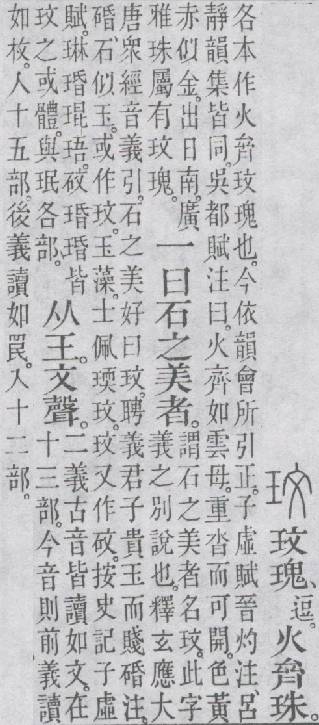 玟瑰、逗。火齊珠。
各本作火齊玟瑰也。今依韻會所引正。子虛賦晉灼注、呂
靜韻集皆同。吳都賦注曰。火齊如雲母。重沓而可開。色黃
赤似金。出日南。廣
雅珠屬有玟瑰。
一曰石之美者。
謂石之美者名玟。此字
義之別說也。釋玄應大
唐衆經音義引。石之美好曰玟。聘義君子貴玉而賤碈注。
碈、石似玉。或作玟。玉藻。士佩瓀玟。玟又作砇。按史記子虛
賦。琳㻉琨珸。砇㻉皆
玟之或體。與珉各部。
从王。文聲。
二義古音皆讀如文。在
十三部。今音則前義讀
如枚。入十五部。後義讀如罠。入十二部。